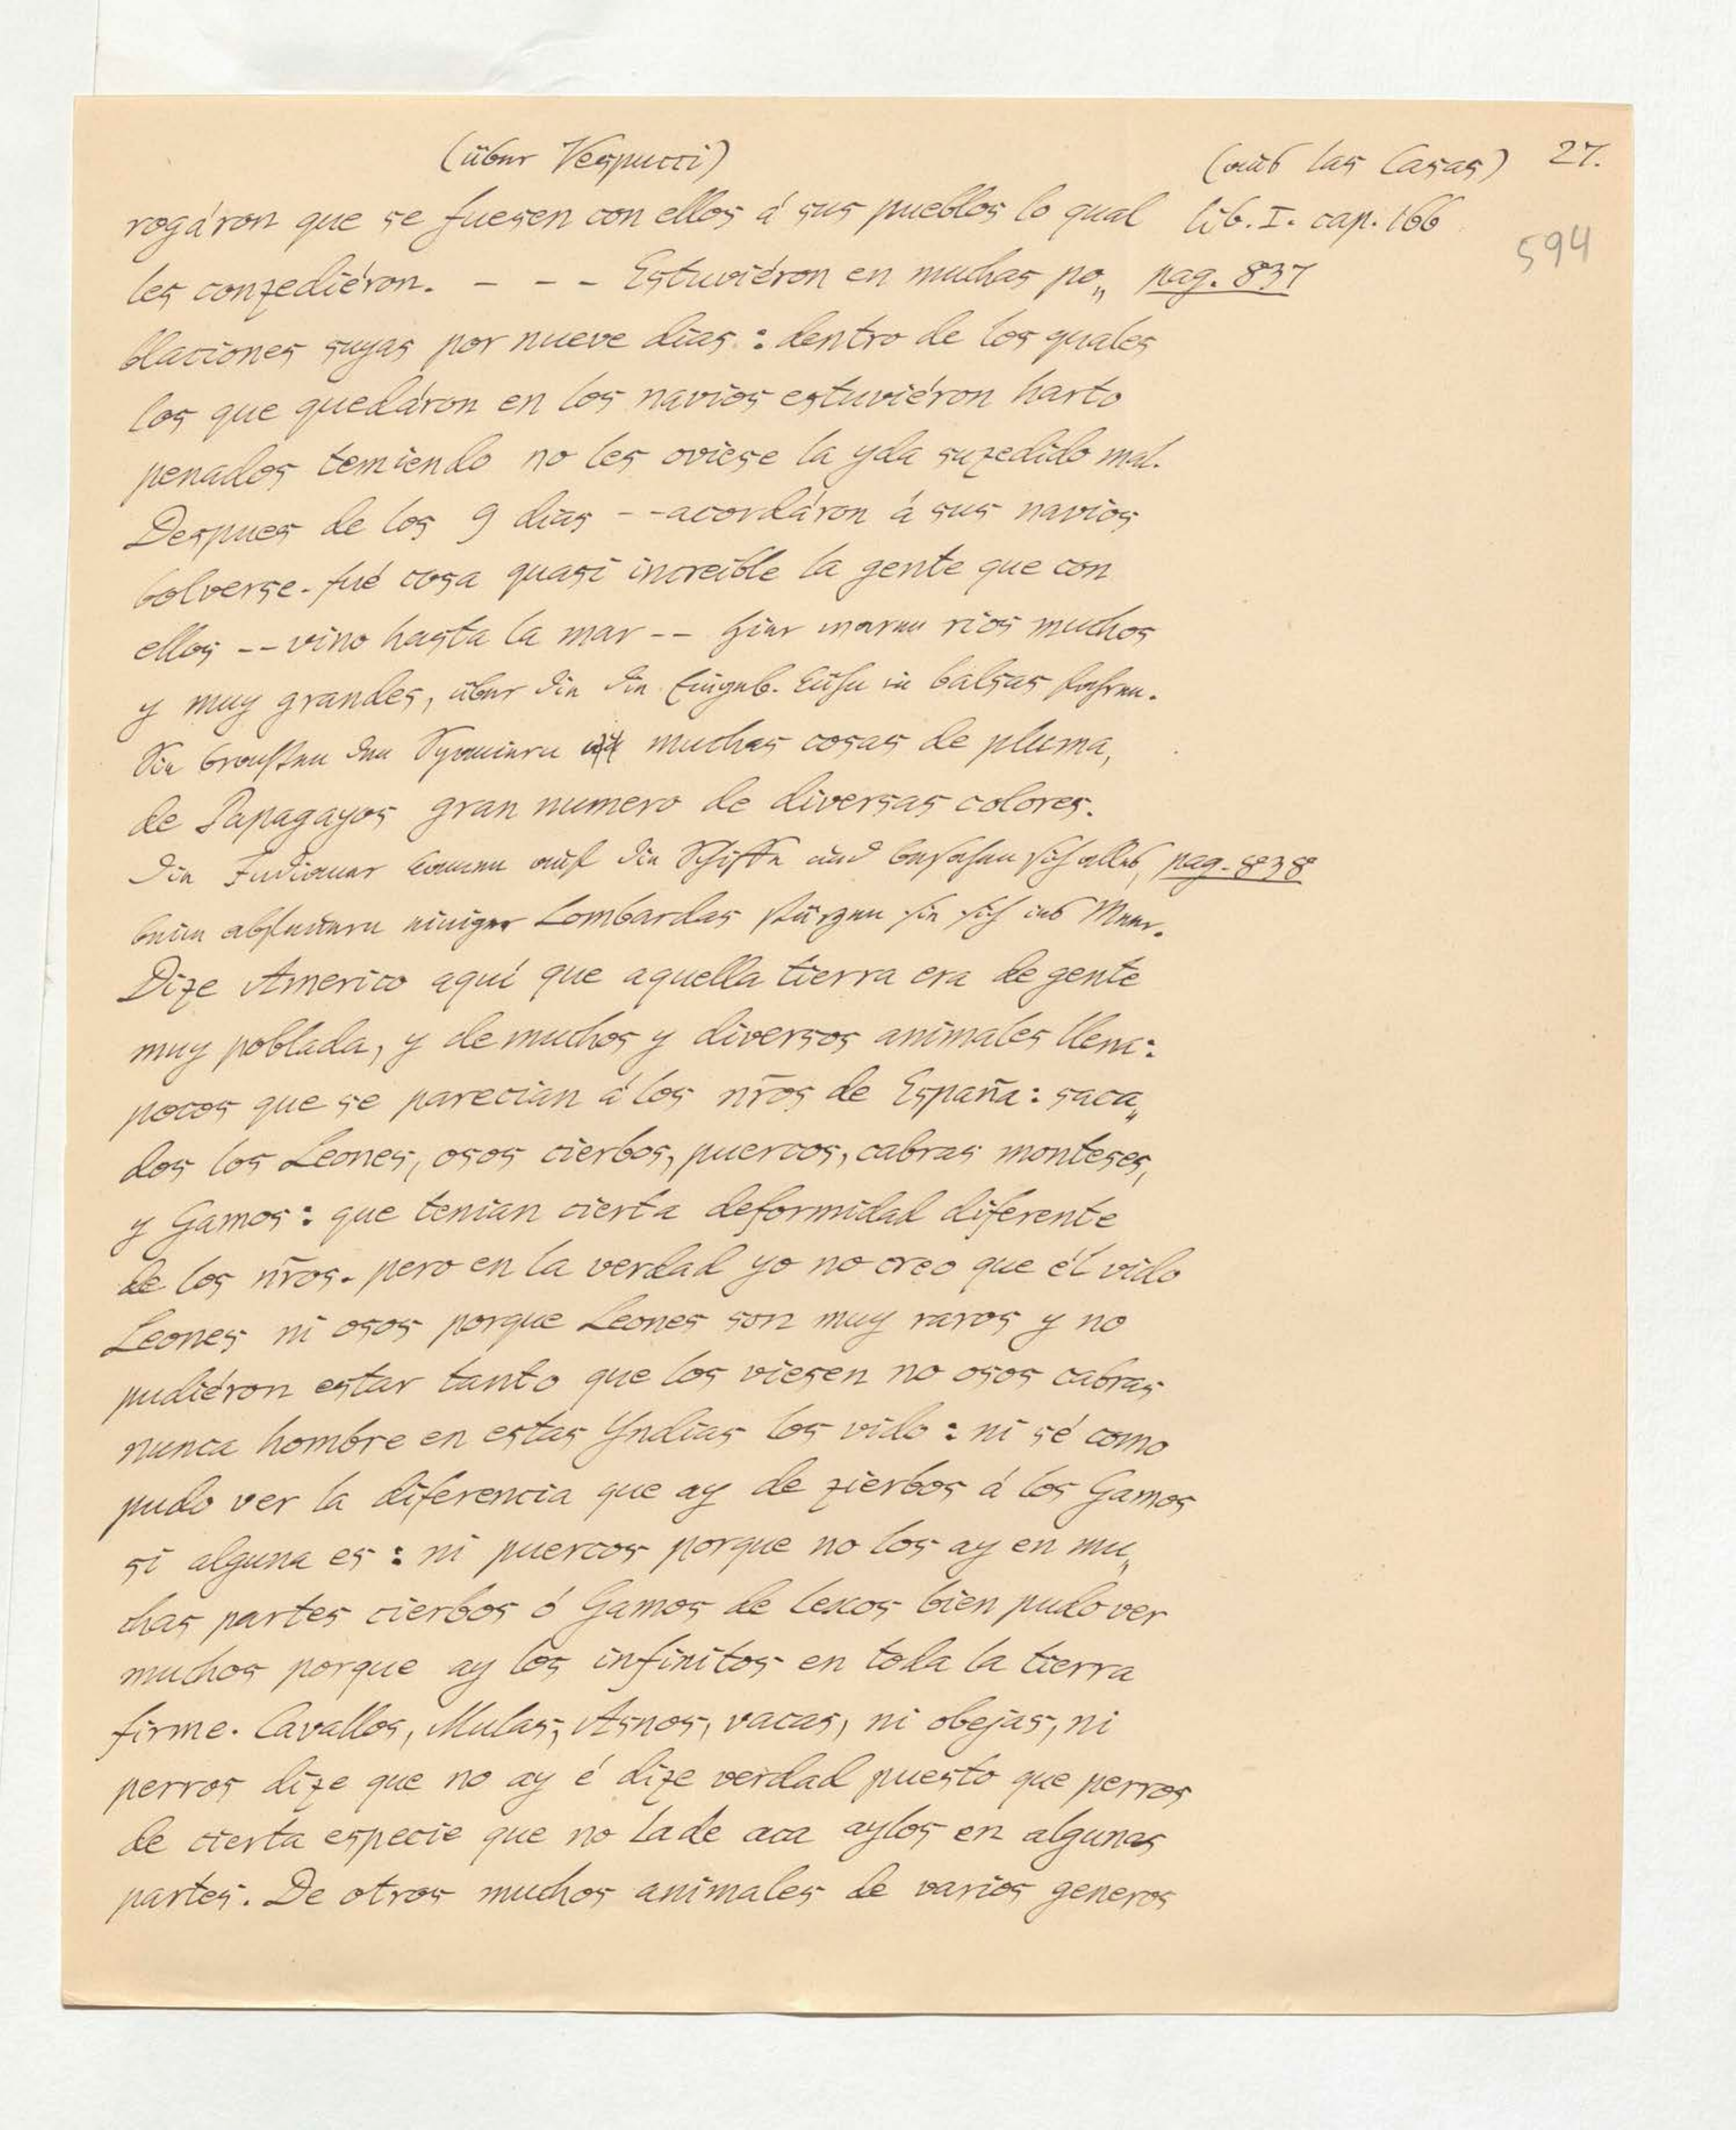 (über Vespucci) (aus las Casas) 27.
rogáron que se fuesen con ellos á sus pueblos lo qual lib. I. cap. 166
594
les conzediéron. – – – Estuviéron en muchas po„ pag. 837
blaciones suyas por nueve dias : dentro de los quales
los que quedáron en los navios estuviéron harto
penados temiendo no les oviese la yda suzedido mal.
Despues de los 9 dias – – acordáron á sus navios
bolverse. fué cosa quasi increible la gente que con
ellos – – vino hasta la mar – – hier waren rios muchos
y muy grandes, über die die Eingeb. Kühn in balsas fahren.
Sie brachten den Spaniern muchas cosas de pluma,
de Papagayos gran numero de diversas colores.
Die Indianer kamen auf die Schiffe und besahen sich alles, pag. 838
beim abfeuern einiger Lombardas stürzen sie sich ins Meer.
Dize Americo aquí que aquella tierra era de gente
muy poblada, y de muchos y diversos animales llena:
pocos que se parecian á los nr̃os de España : saca„
dos los Leones, osos cierbos, puercos, cabras monteses,
y Gamos : que tenian cierta deformidad diferente
de los nr̃os. pero en la verdad yo no creo que él vido
Leones ni osos porque Leones son muy raros y no
pudiéron estar tanto que los viesen no osos cabras
nunca hombre en estas Yndias los vido : ni sé como
pudo ver la diferencia que ay de zierbos á los Gamos
si alguna es : ni puercos porque no los ay en mu„
chas partes cierbos ó Gamos de lexos bien pudo ver
muchos porque ay los infinitos en toda la tierra
firme. Cavallos, Mulas, Asnos, vacas, ni obejas, ni
perros dize que no ay é dize verdad puesto que perros
de cierta especie que no lade aca aylos en algunas
partes. De otros muchos animales de varios generos